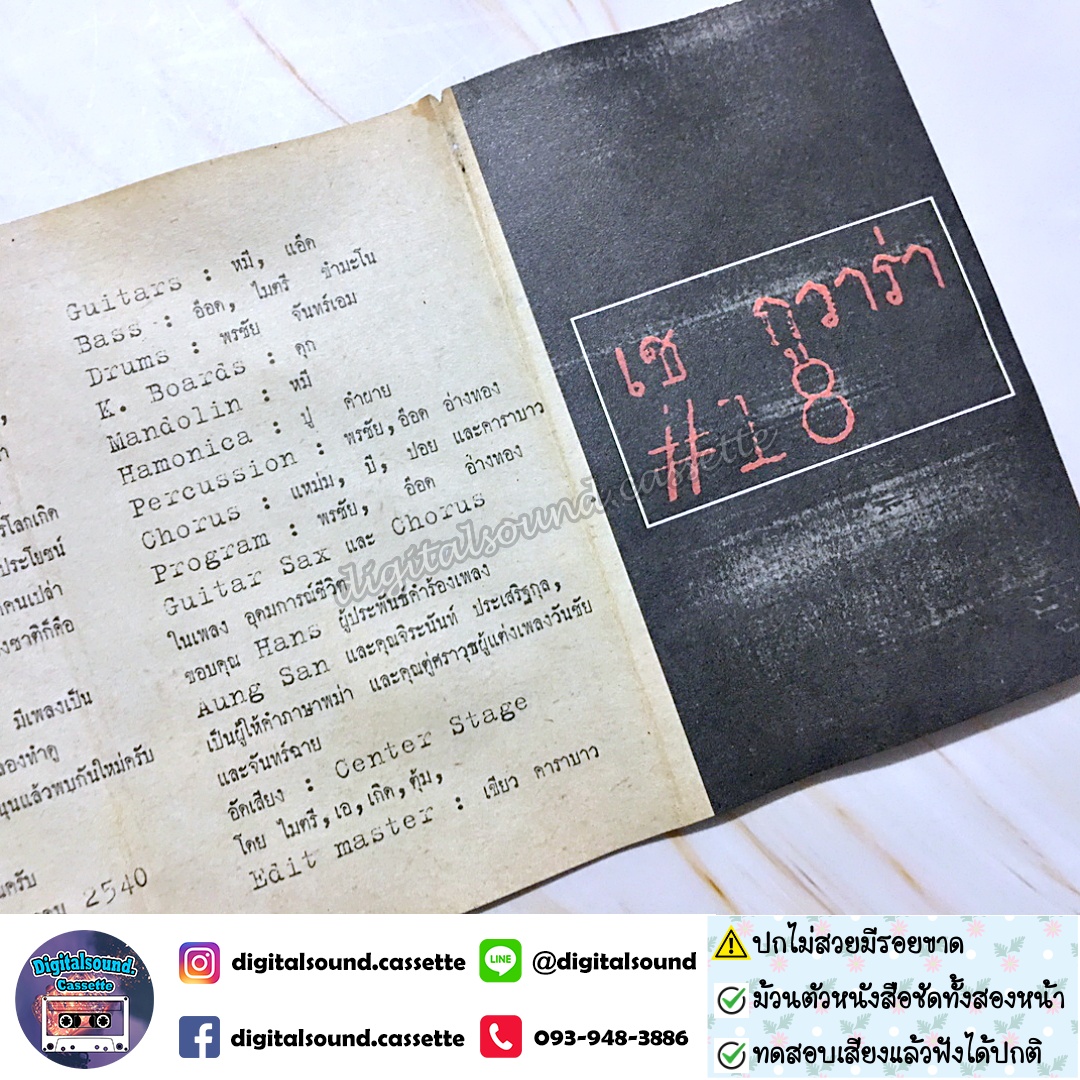 รโลกเกิด
ประโยชน์
คนเปล่า
งชาติก็คือ
มีเพลงเป็น
ลองทำดู
นุนแล้วพบกันใหม่ครับ
นครับ
2540
Guitars : หมี, แอ๊ด
Bass : อ๊อด, ไมตรี ชำมะโน
Drums : พรชัย จันทร์เอม
K. Boards : ดุก
Mandolin : หมี
Hamonica : ปู คำผาย
Percussion : พรชัย,อ๊อด อ่างทอง
Chorus : แหม่ม, ปี, ปอย และคาราบาว
Program : พรชัย, อ๊อด อ่างทอง
Guitar Sax และ Chorus
ในเพลง อุดมการณ์ชีวิต
ขอบคุณ Hans ผู้ประพันธ์คำร้องเพลง
Aung San และคุณจิระนันท์ ประเสริฐกุล,
เป็นผู้ให้คำภาษาพม่า และคุณตู่ศราวุธผู้แต่งเพลงวันชัย
และจันทร์ฉาย
อัดเสียง : Center Stage
โดย ไมตรี,เอ,เกิด,ตุ้ม,
Edit master : เขียว คาราบาว
เช กูวาร่า
#18
digitalsound cassette
Digitalsound.
Cassette
digitalsound.cassette
@digitalsound
digitalsound.cassette
093-948-3886
ปกไม่สวยมีรอยขาด
ม้วนตัวหนังสือชัดทั้งสองหน้า
ทดสอบเสียงแล้วฟังได้ปกติ